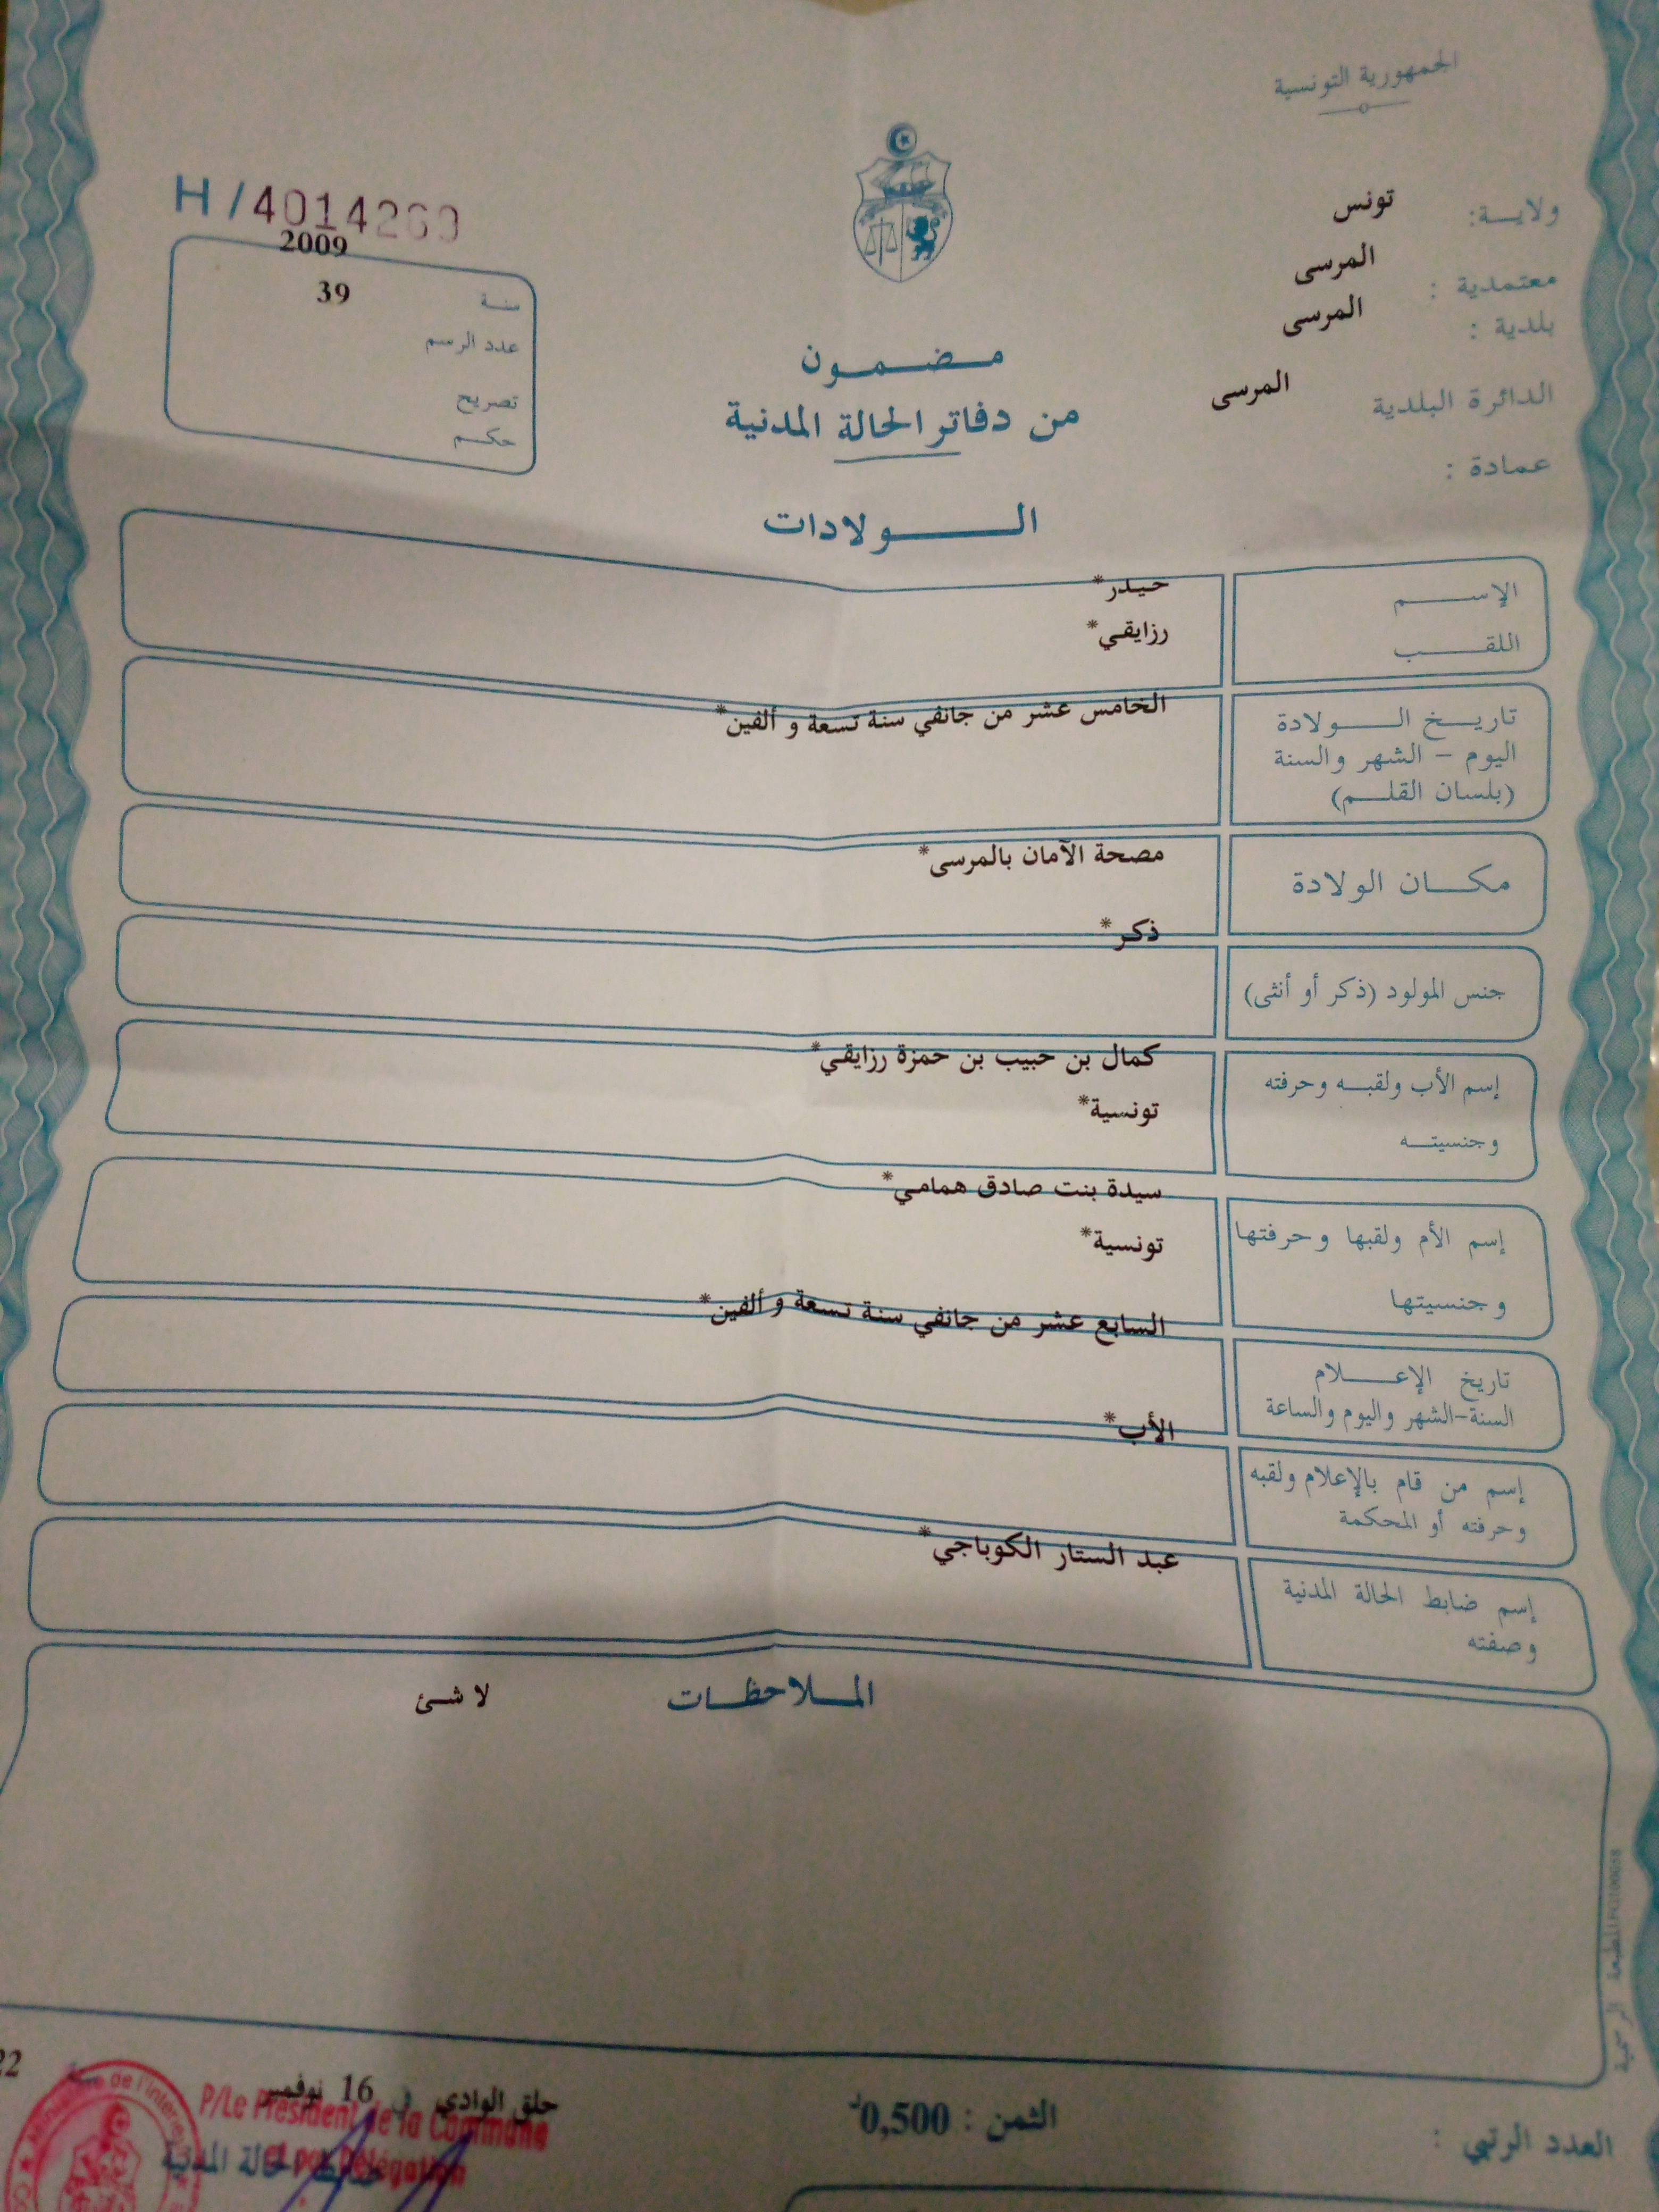 الجمهورية التونسية
ولايـــة: تونس
معتمدية : المرسى
بلدية : المرسى
الدائرة البلدية المرسى
عمادة :
H / 4014269
2009
سنـة 39
عدد الرسم
تصريح
حكـم
مـضـمـون
من دفاتر الحالة المدنية
الـــولادات
الإســـم حيدر*
اللقـــب رزايقي*
تاريــخ الـــولادة الخامس عشر من جانفي سنة تسعة و ألفين*
اليوم – الشهر والسنة
(بلسان القلـم)
مكــان الولادة مصحة الآمان بالمرسى*
ذكر*
جنس المولود (ذكر أو أنثى)
إسم الأب ولقبـه وحرفته كمال بن حبيب بن حمزة رزايقي*
وجنسيتـه تونسية*
سيدة بنت صادق همامي*
إسم الأم ولقبها وحرفتها تونسية*
وجنسيتها
السابع عشر من جانفي سنة تسعة و ألفين*
تاريخ الإعـــلام
السنة-الشهر واليوم والساعة
الأب*
إسم من قام بالإعلام ولقبه
وحرفته أو المحكمة
عبد الستار الكوباجي*
إسم ضابط الحالة المدنية
وصفته
المـلاحظـات لا شئ
المطبعة الرسمية
العدد الرتبي :
الثمن : 0,500د
حلق الوادي في 16 نوفمبر
22
P/Le Président de la Commune
et par Délégation
الحالة المدنية
Ministère de l'Intérieur